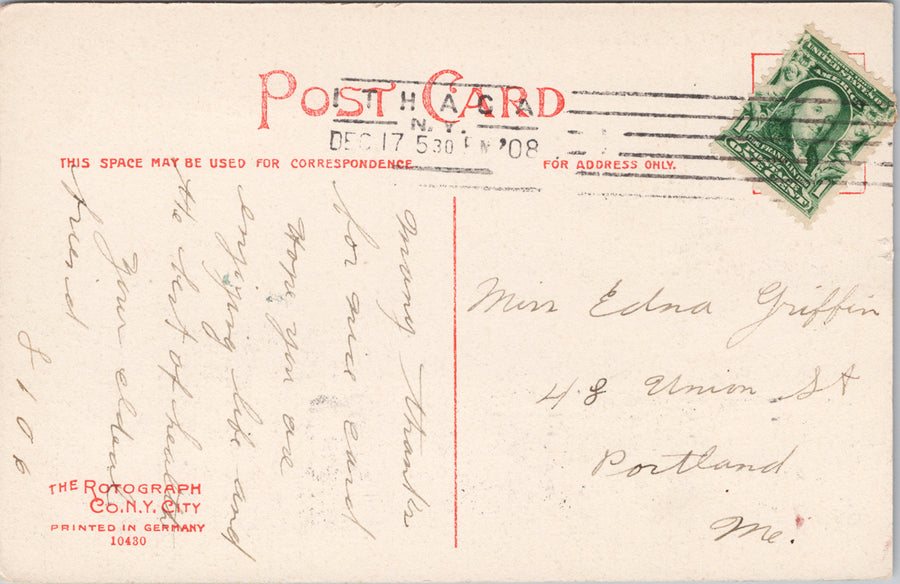 POST CARD
ITHACA
N.Y.
DEC 17 5 30 PM '08
THIS SPACE MAY BE USED FOR CORRESPONDENCE
FOR ADDRESS ONLY.
UNITED STATES OF AMERICA
1 FRANKLIN 1
ONE CENT
Many thanks
for nice card
Hope you are
enjoying life and
the best of health
Your
friend
Miss Edna Griffin
48 Union St
Portland
Me.
THE ROTOGRAPH
CO. N.Y. CITY
PRINTED IN GERMANY
10430